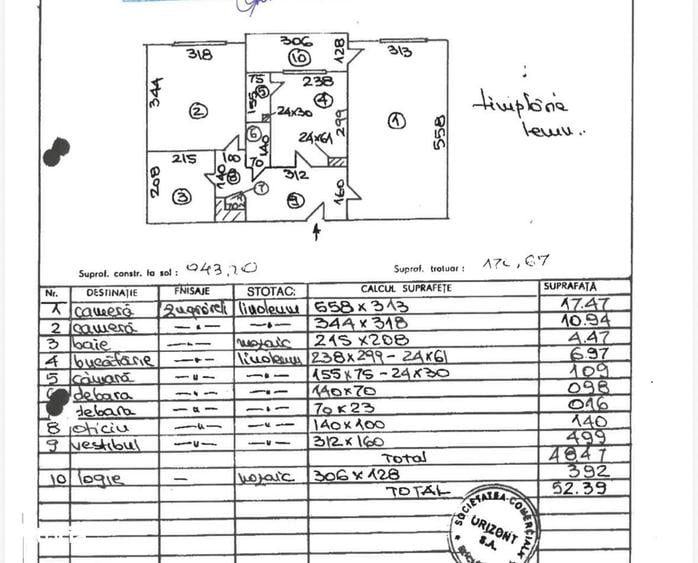 306
318
10
128
313
344
75
5
155
238
4
2
24×30
299
1
558
tîmplărie
lemn..
6
140
24×61
215
70
312
208
140
8
3
7
9
160
Supraf. constr. la sol : 943,20
Supraf. trotuar :
Nr. DESTINAȚIE FNISAJE STOTAC: CALCUL SUPRAFEȚE SUPRAFAȚĂ
1 cameră zugrăveli linoleum 558×313 17.47
2 cameră —"— —"— 344×318 10.94
3 baie —"— mozaic 215×208 4.47
4 bucătărie —"— linoleum 238×299-24×61 6.97
5 cămară —"— —"— 155×75-24×30 109
debara —"— —"— 140×70 098
debara —"— —"— 70×23 016
8 oficiu —"— —"— 140×100 140
9 vestibul —"— —"— 312×160 499
Total 4847
10 logie — mozaic 306×128 392
TOTAL 52.39
SOCIETATEA COMERCIALĂ
URIZONT
S.A.